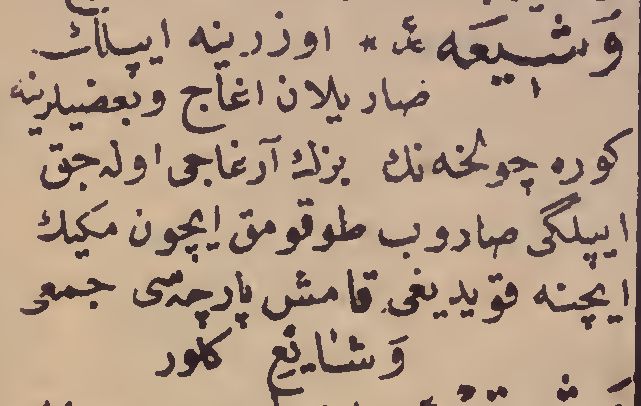 وَشيعَه ع * اوزرينه ايپلك
صاريلان اغاج وبعضيلرينه
كوره چولخه نك بزك آرغاجى اوله جق
ايپلگى صاروب طوقومق ايچون مكيك
ايچنه قويديغى قامش پارچه سى جمعى
وَشايع كلور